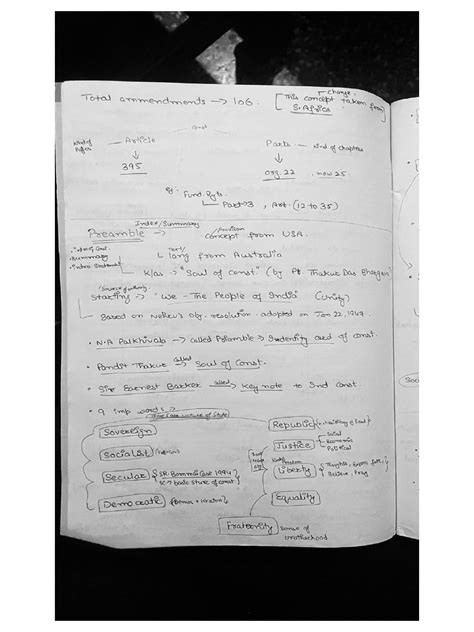 change
Total ammendments → 106. [This concept taken from
S. Africa]
Const
kind of pages Article Parts → kind of chapters
395 org. 22 . now 25
eg: Fund. Rgts.
Part→3, Art. (12 to 35)
Index/Summary
Preamble → concept from USA.
text/lang from Australia
Summary
K/as → "Soul of Const" (by Pt. Thakur Das Bhargav)
Starting → "We - The People of India" (Unity)
Based on Nehru's obj. resolution adopted on Jan 22, 1947.
• N.A Palkhivala → called Preamble → Identity card of const.
• Pandit Thakur called → Soul of Const.
• Sir Earnest Barker called → Key note to Ind Const
• 9 imp words →
nature of State
Sovereign Republic
Socialist Justice → Social
Economic
Political
Secular {SR Bommai Case 1994 Liberty
SC → basic struc of const}
Democratic Equality
Fraternity Sense of
brotherhood